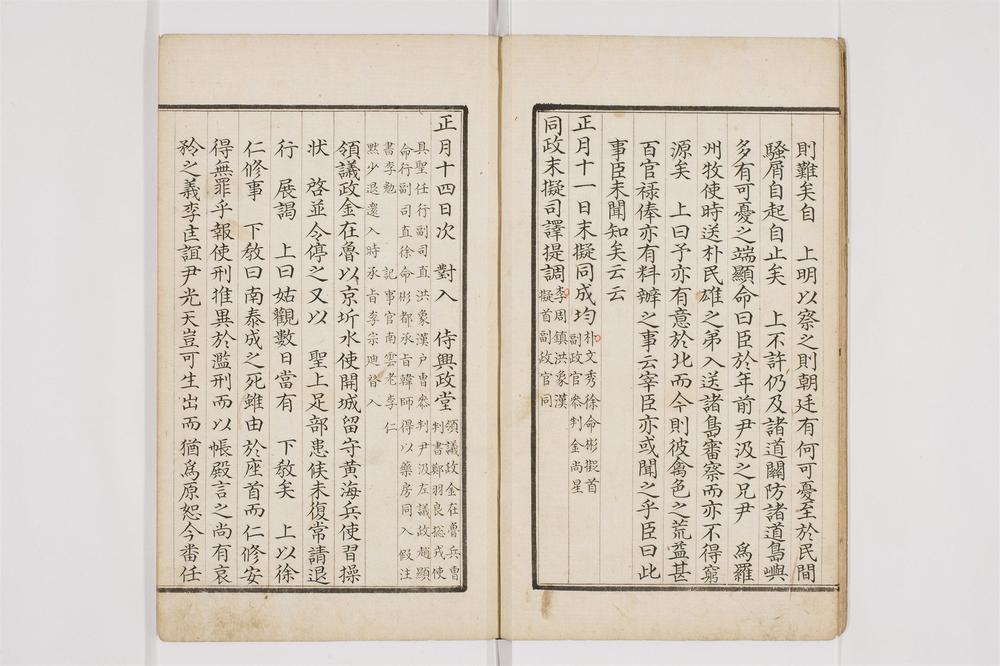 則難矣自　上明以察之則朝廷有何可憂至於民間
騷屑自起自止矣　上不許仍及諸道關防諸道島嶼
多有可憂之端顯命曰臣於年前尹汲之兄尹　爲羅
州牧使時送朴民雄之弟入送諸島審察而亦不得窮
源矣　上曰予亦有意於北而今則彼禽色之荒益甚
百官祿俸亦有料辦之事云宰臣亦或聞之乎臣曰此
事臣未聞知矣云云
正月十一日末擬同成均朴文秀徐命彬擬首
副政官參判金尚星
同政末擬司譯提調李周鎮洪象漢
擬首副政官同
正月十四日次　對入　侍興政堂領議政金在魯兵曹
判書鄭羽良摠戎使
具聖任行副司直洪象漢戶曹參判尹汲左議政趙顯
命行副司直徐命彬都承旨韓師得以藥房同入假注
書李勉　記事官南雲老李仁
默少退還入時承旨李宗迪替入
領議政金在魯以京圻水使開城留守黃海兵使習操
狀　啓並令停之又以　聖上足部患候未復常請退
行　展謁　上曰姑觀數日當有　下敎矣　上以徐
仁修事　下敎曰南泰成之死雖由於座首而仁修安
得無罪乎報使刑推異於濫刑而以帳殿言之尚有哀
矜之義李匡誼尹光天豈可生出而猶爲原恕今番任